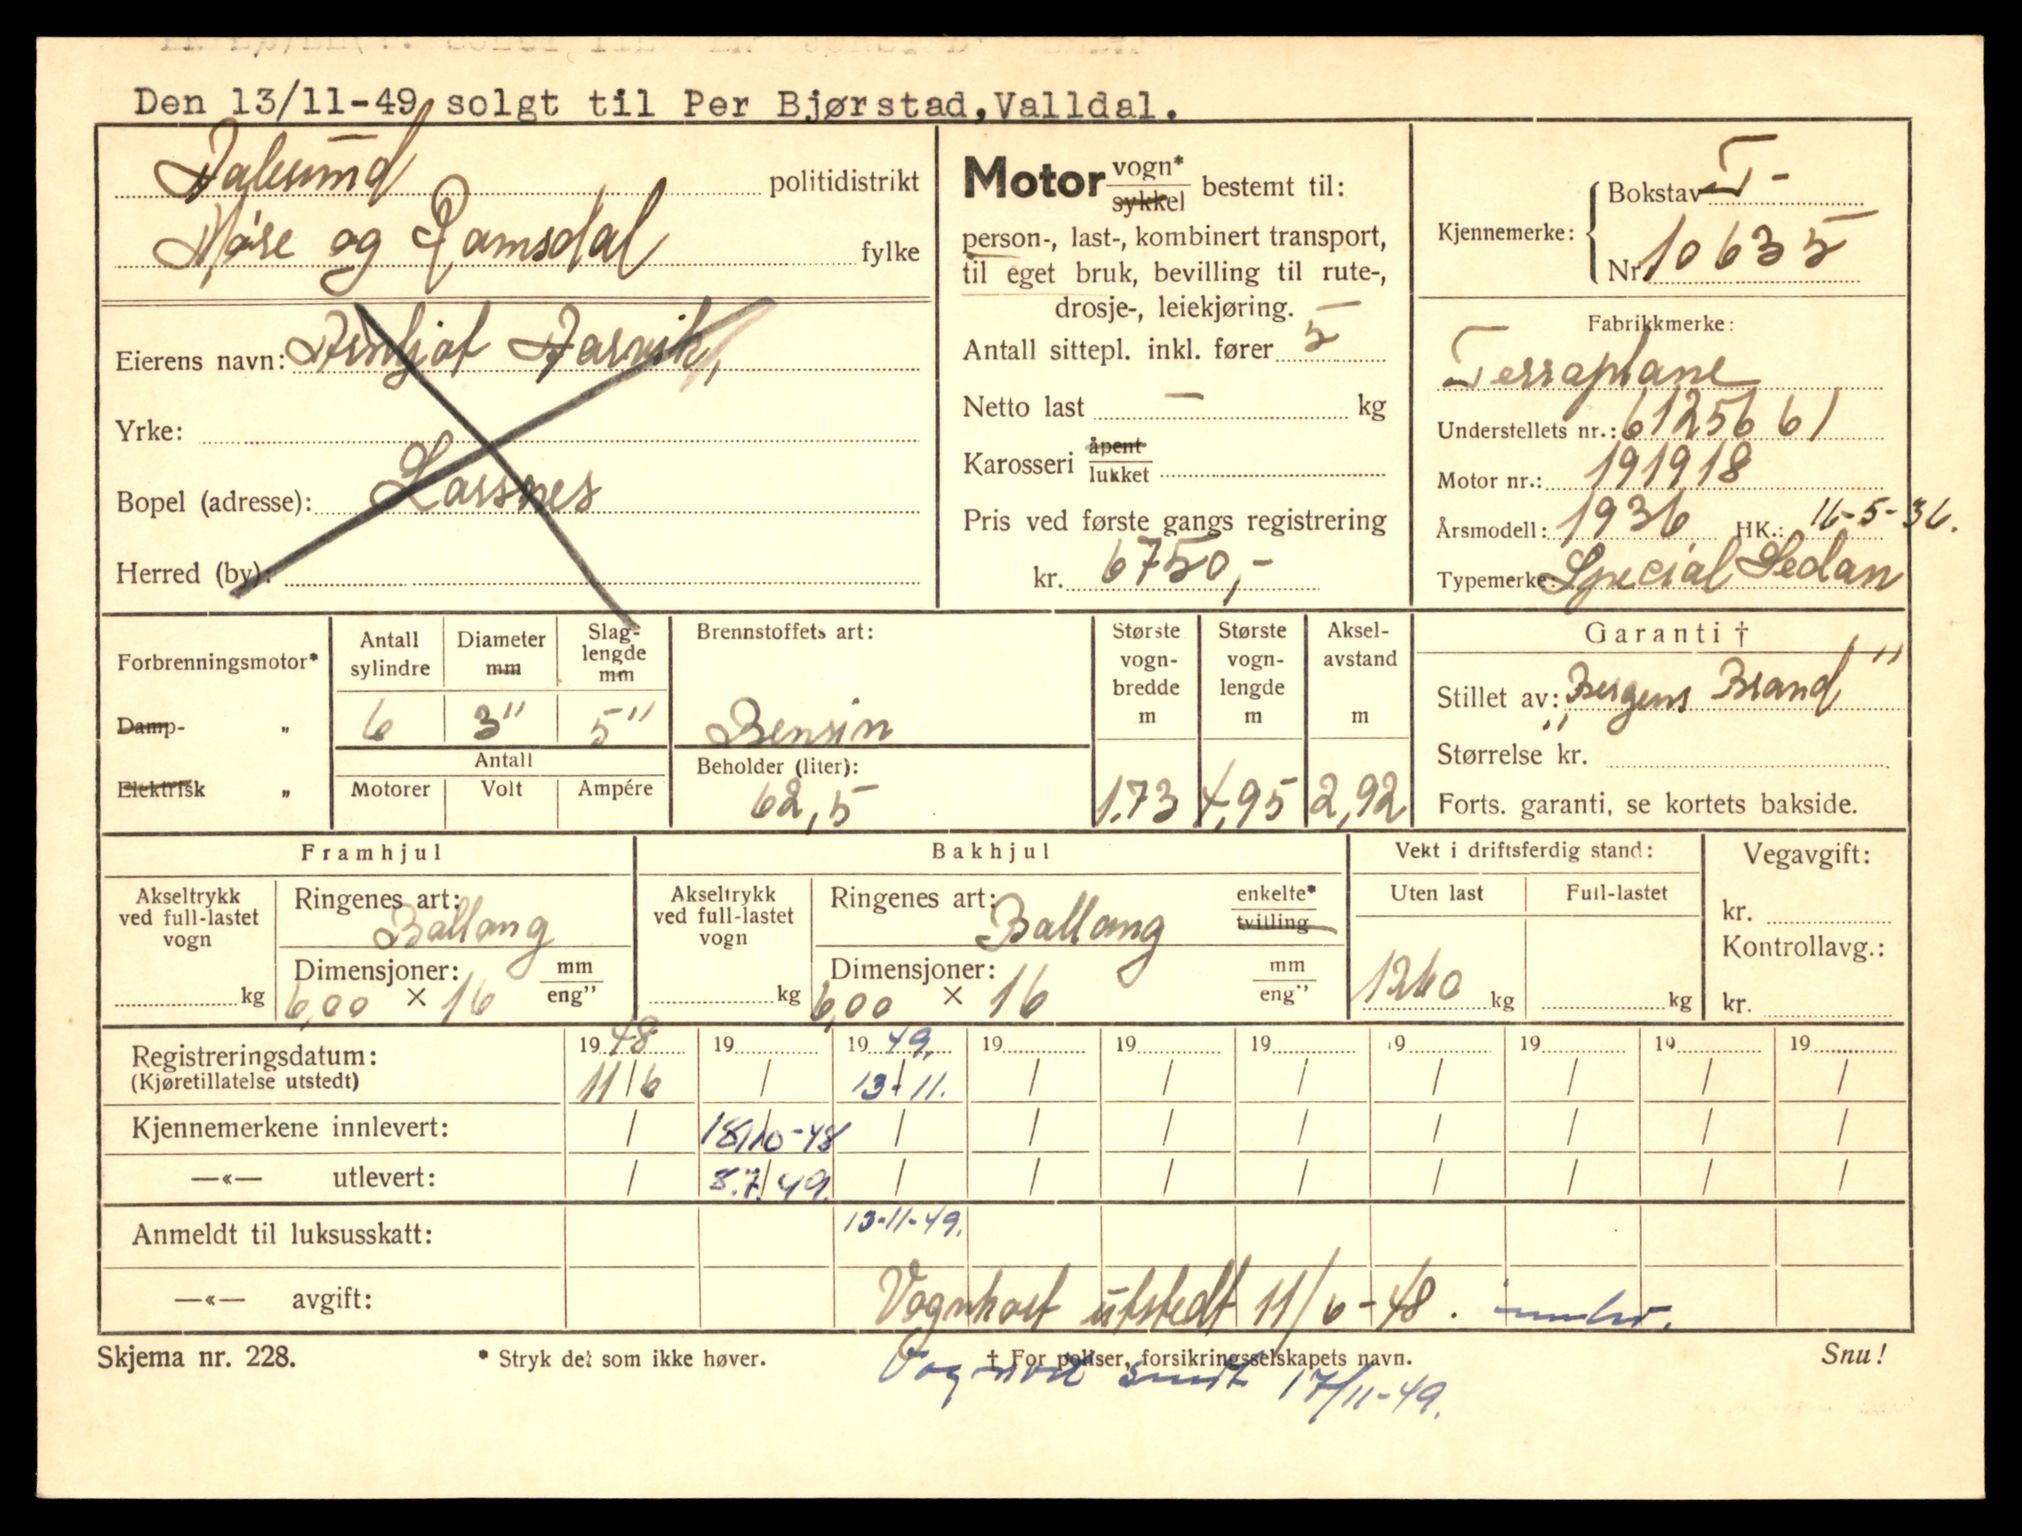 Den 13/11-49 solgt til Per Bjørstad, Valldal.
Aalesund politidistrikt
Møre og Romsdal fylke
Eierens navn: Aarvik,
Yrke:
Bopel (adresse): Larsnes
Herred (by):
Motor vogn* sykkel bestemt til:
person-, last-, kombinert transport,
til eget bruk, bevilling til rute-,
drosje-, leiekjøring.
Antall sittepl. inkl. fører 5
Netto last — kg
Karosseri åpent lukket
Pris ved første gangs registrering
kr. 6750,-
Kjennemerke: Bokstav T-
Nr. 10635
Fabrikkmerke:
Terraplane
Understellets nr.: 6125661
Motor nr.: 191918
Årsmodell: 1936 HK.: 16-5-36.
Typemerke: Special Sedan
Forbrenningsmotor*
Damp- "
Elektrisk "
Antall sylindre Diameter mm Slaglengde mm
6 3" 5"
Antall
Motorer Volt Ampére
Brennstoffets art:
Bensin
Beholder (liter):
62,5
Største vognbredde m Største vognlengde m Akselavstand m
1.73 4,95 2,92
Garanti †
Stillet av: "Bergens Brand"
Størrelse kr.
Forts. garanti, se kortets bakside.
Framhjul
Akseltrykk ved full-lastet vogn kg
Ringenes art:
Ballong
Dimensjoner: mm eng"
6,00 × 16
Bakhjul
Akseltrykk ved full-lastet vogn kg
Ringenes art: enkelte* tvilling
Ballong
Dimensjoner: mm eng"
6,00 × 16
Vekt i driftsferdig stand:
Uten last Full-lastet
1260 kg kg
Vegavgift:
kr.
Kontrollavg.:
kr.
Registreringsdatum: 1948 19 1949. 19 19 19 19 19 19 19
(Kjøretillatelse utstedt) 11/6 / 13/11. / / / / / / /
Kjennemerkene innlevert: / 18/10-48 / / / / / / / /
—«— utlevert: / 8.7.49. / / / / / / / /
Anmeldt til luksusskatt: 13-11-49.
—«— avgift: Vognkort utstedt 11/6-48. innlev.
Skjema nr. 228. * Stryk det som ikke høver. † For poliser, forsikringsselskapets navn. Snu!
Vognkort sendt 17/11-49.